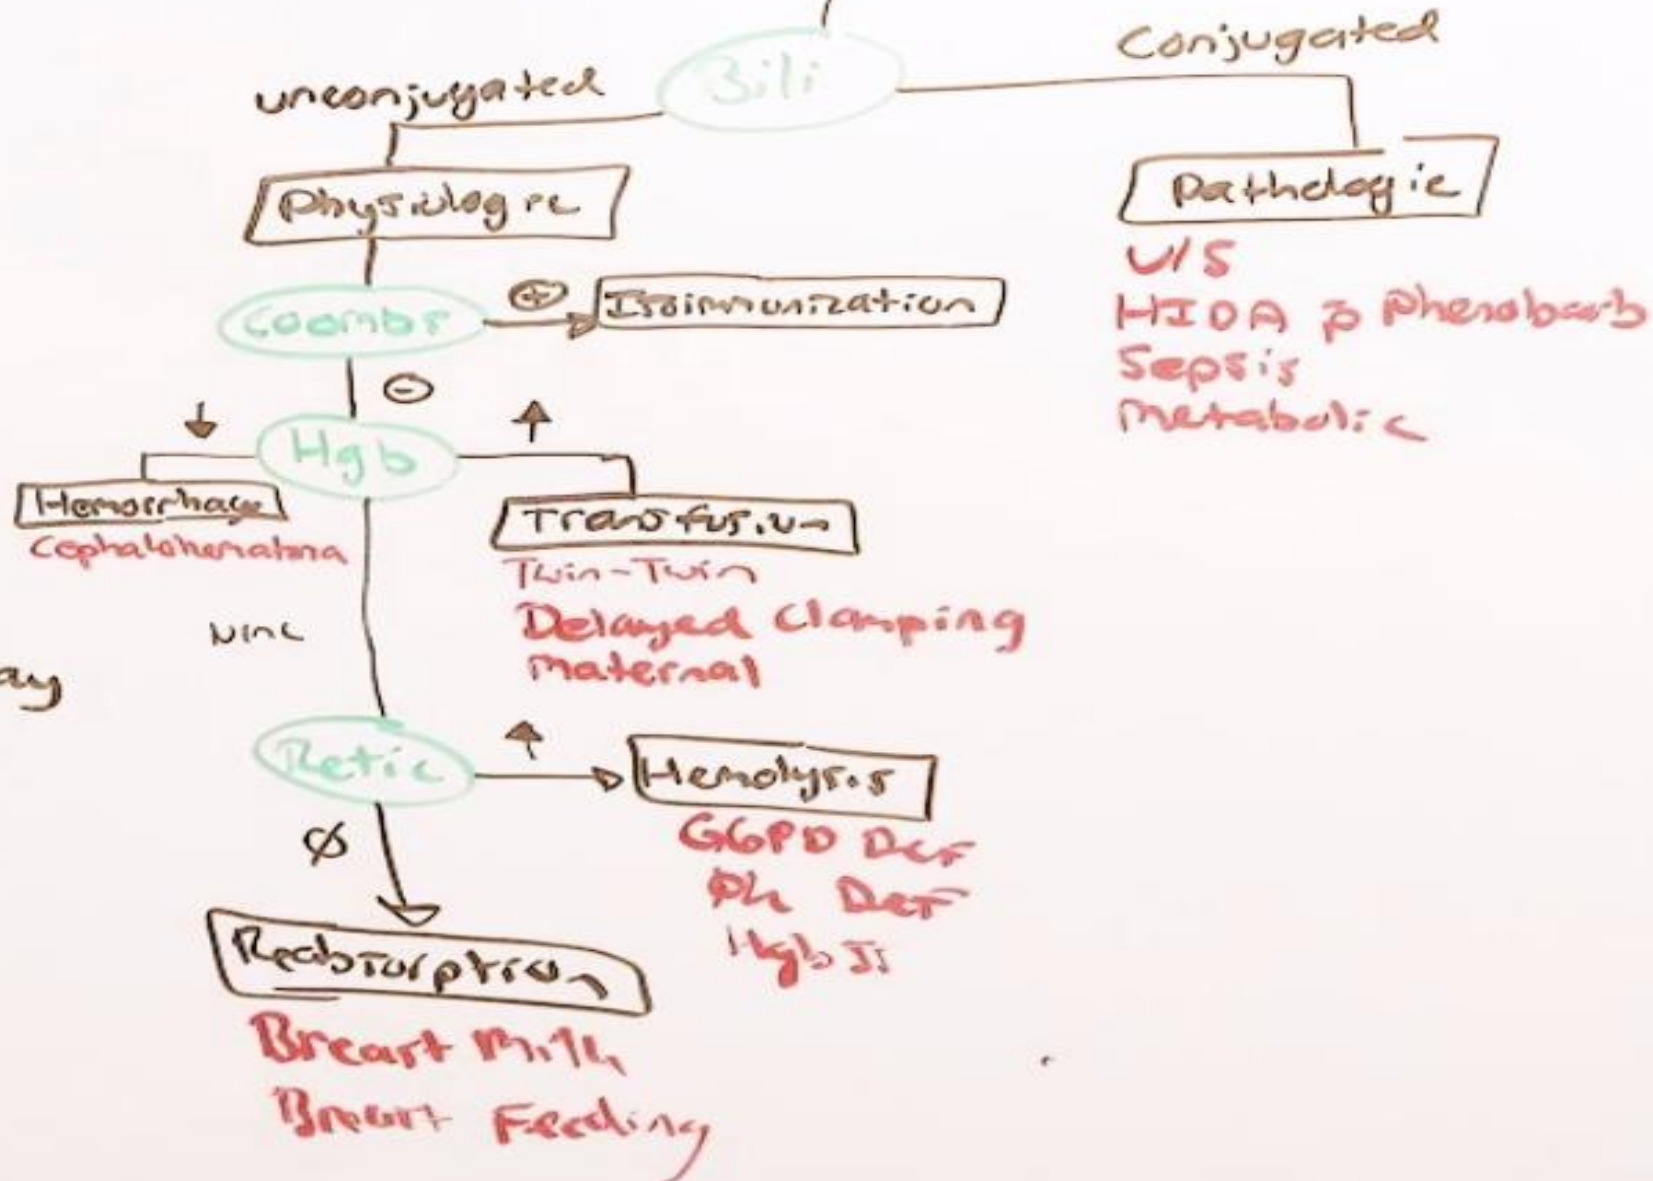 Conjugated
unconjugated
Bili
Physiologic
Pathologic
U/S
HIDA p̄ Phenobarb
Sepsis
Metabolic
Coombs
⊕
Isoimmunization
⊖
↓
↑
Hgb
Hemorrhage
Cephalohematoma
Transfusion
Twin-Twin
Delayed Clamping
Maternal
ay
Retic
↑
Hemolysis
G6PD Def
Pk Def
Ø
Reabsorption
Breast Milk
Breast Feeding